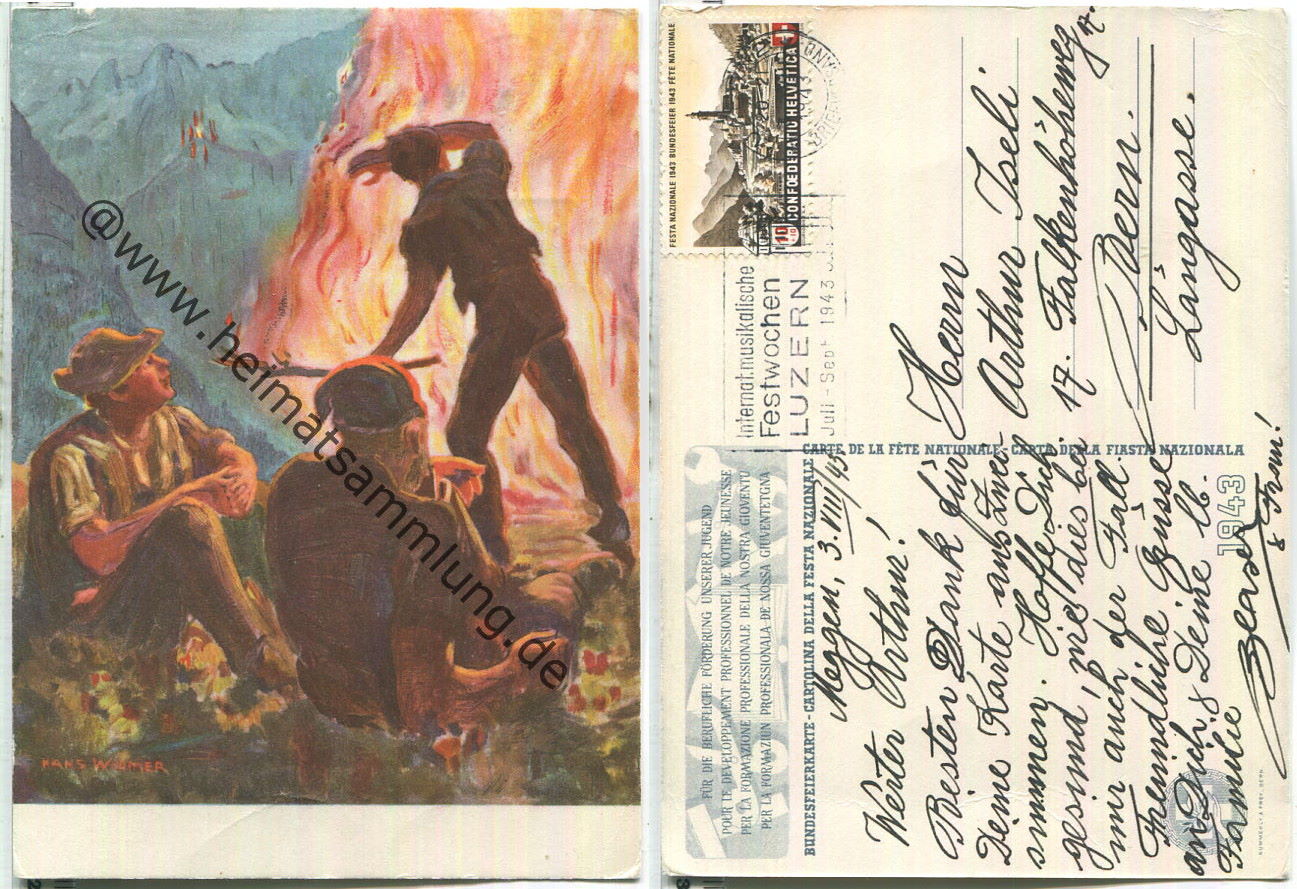 HANS WILMER
@www.heimatsammlung.de
FESTA NAZIONALE 1943 BUNDESFEIER 1943 FÊTE NATIONALE
CONFOEDERATIO HELVETICA
10
Internat.musikalische
Festwochen
LUZERN
Juli - Sept 1943
FÜR DIE BERUFLICHE FÖRDERUNG UNSERER JUGEND
POUR LE DEVELOPPEMENT PROFESSIONNEL DE NOTRE JEUNESSE
PER LA FORMAZIONE PROFESSIONALE DELLA NOSTRA GIOVENTÙ
PER LA FORMAZIUN PROFESSIONALA DE NOSSA GIUVENTETGNA
BUNDESFEIERKARTE - CARTOLINA DELLA FESTA NAZIONALE
CARTE DE LA FÊTE NATIONALE - CARTA DELLA FIASTA NAZIONALA
1943
Meggen, 3.VIII/43
Werter Arthur!
Besten Dank für
Deine Karte aus
summen. Hoffe Dich
gesund, wie dies bei
mir auch der Fall.
Freundliche Grüsse
an Dich & Deine lb.
Familie
& Frau!
Herrn
Arthur Iseli.
17. Falkenhöheweg 17.
Bern.
Länggasse.
KÜMMERLY & FREY, BERN